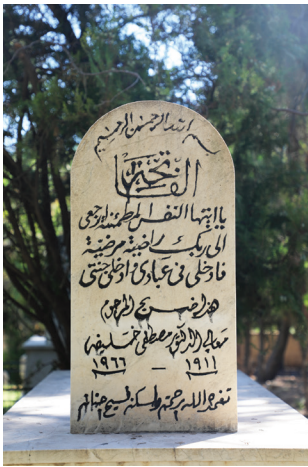 بسم الله الرحمن الرحيم
الفاتحة
يا ايتها النفس المطمئنة ارجعي
الى ربك راضية مرضية
فادخلي في عبادي وادخلي جنتي
هذا ضريح المرحوم
معالي الدكتور مصطفى خليفة
١٩١١ — ١٩٦٦
تغمده الله برحمته واسكنه فسيح جنانه